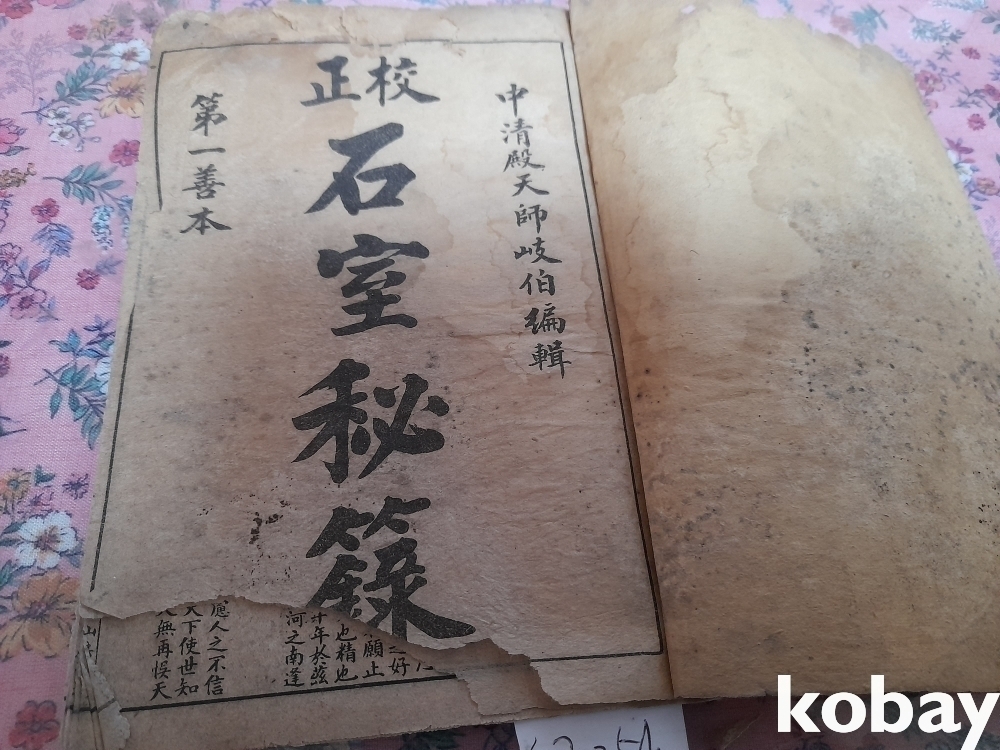 中清殿天師岐伯編輯
校正
石室秘籙
第一善本
好
願止
也精也
年於茲
河之南逢
慮人之不信
天下使世知
無再悞天
山
kobay